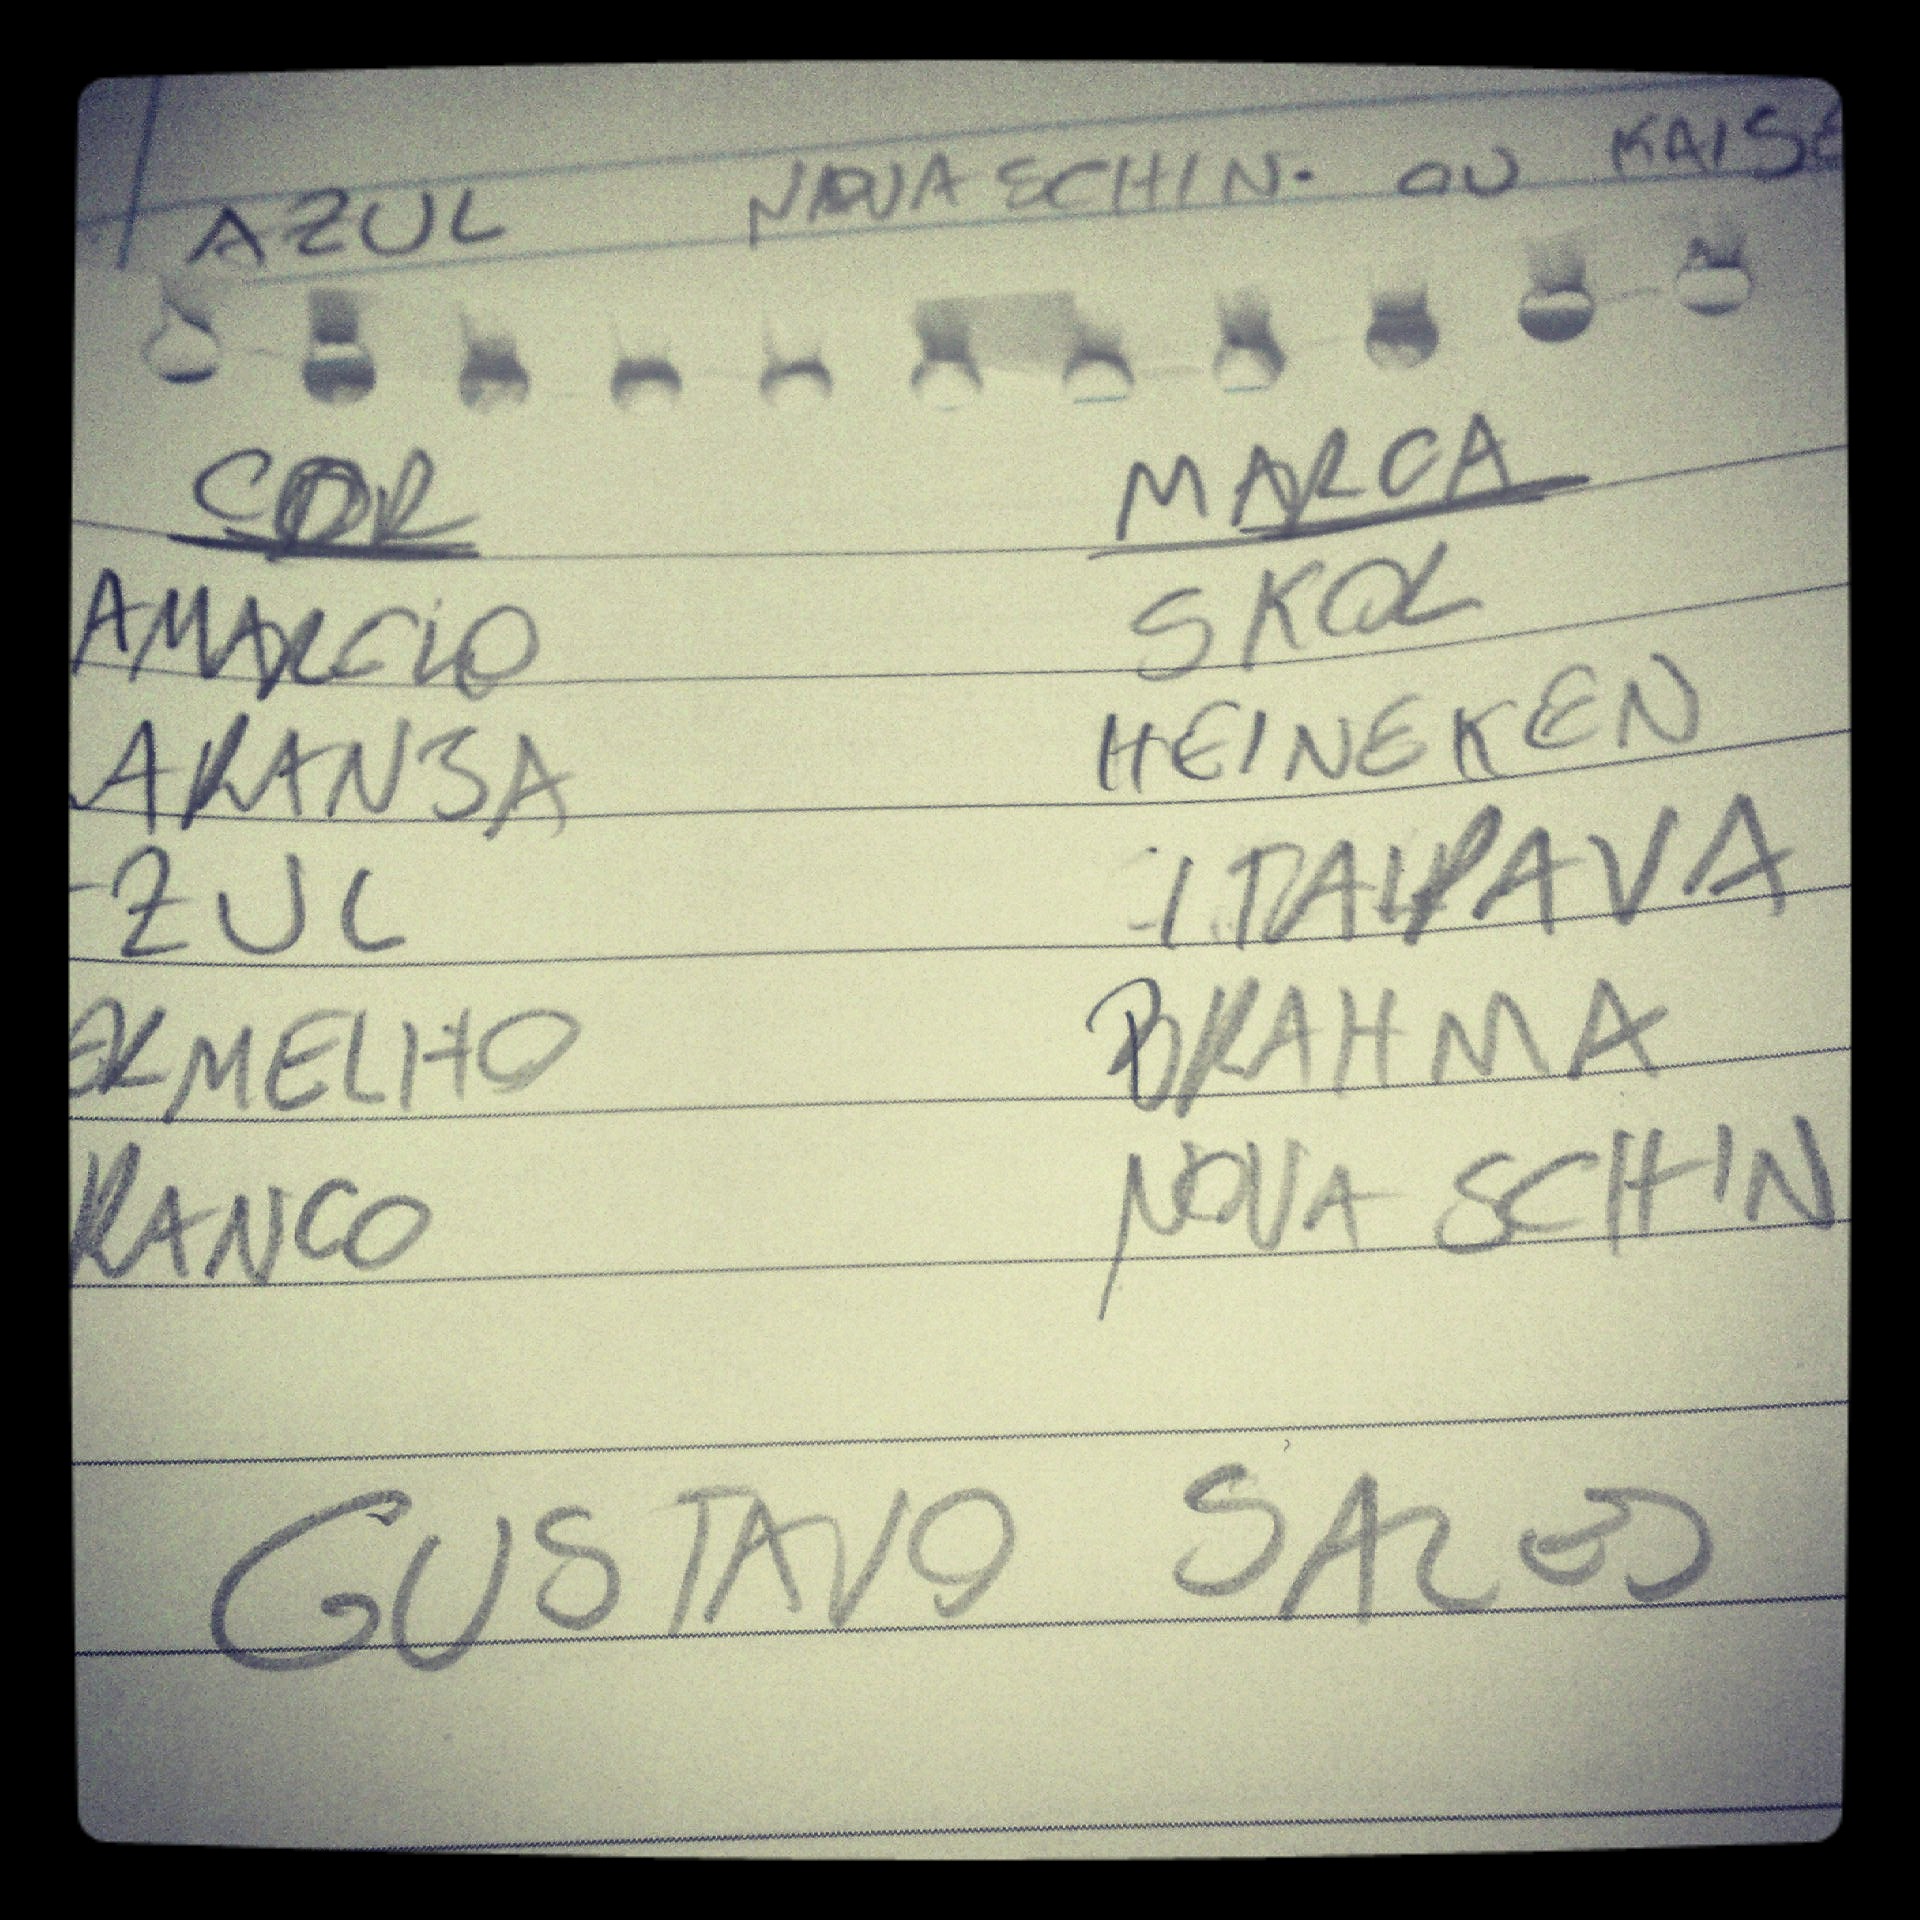 AZUL NOVA SCHIN. OU KAISE
COR MARCA
AMARELO SKOL
LARANJA HEINEKEN
AZUL ITAIPAVA
ERMELHO BRAHMA
RANCO NOVA SCHIN
GUSTAVO SALES